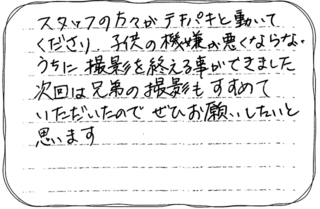 スタッフの方々がテキパキと動いて
くださり、子供の機嫌が悪くならな
うちに撮影を終える事ができました
次回は兄弟の撮影もすすめて
いただいたので ぜひお願いしたいと
思います